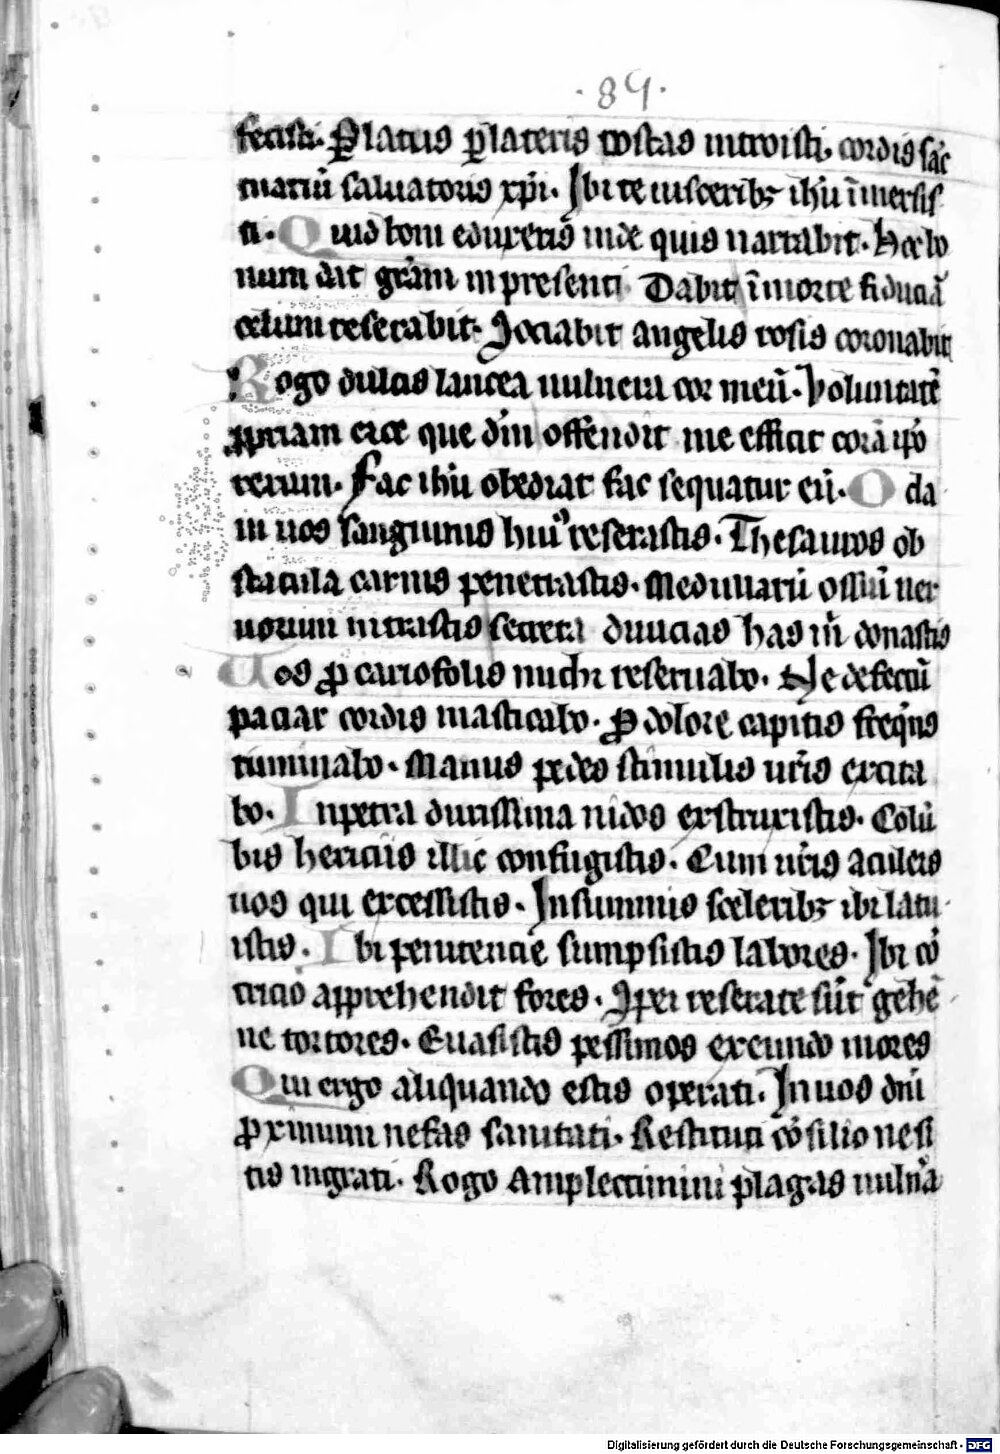 ·89·
fecisti. Platus plateris costas introisti. cordis sāc
tuariū saluatoris xp̄i. Ibi te uiscerib; ih̄u īmersis
ti. Quid boni eduxeris inde quis narrabit. Hec bo
num dat grām in presenti Dabit ī morte fiduciā
celum reserabit. Sociabit angelis rosis coronabit
Rogo dulcis lancea uulnera cor meū. Voluntatē
propriam eice que dn̄i offendit me efficit corā ipō
rerum. Fac ih̄u obediat fac sequatur eū. O da
ui uos sanguinis hui9 reserastis. Thesauros ob
stacula carnis penetrastis. Medullarū ossiū ner
uorum intrastis secreta diuicias has m̄ donastis
Vos pro cariofolis michi reseruabo. Ne defectū
paciar cordis masticabo. Pro dolore capitis freq̄ns
ruminabo. Manus pedes stimulis ur̄is excita
bo. In petra durissima nidos exstruxistis. Colū
bis hericiis illic confugistis. Cum ur̄is aculeis
uos qui excessistis. In summis sceleribꝫ ibi latu
istis. Ibi penitencie sumpsistis labores. Ibi cō
tricio apprehendit fores. Iperi reserate sūt gehē
ne tortores. Euasistis pessimos exeundo mores
Qui ergo aliquando estis operati. In uos dn̄i
proximum nefas sanitati. Restituti cōsilio ne si
tis ingrati. Rogo Amplectimini plagas uuln̄a
Digitalisierung gefördert durch die Deutsche Forschungsgemeinschaft - DFG